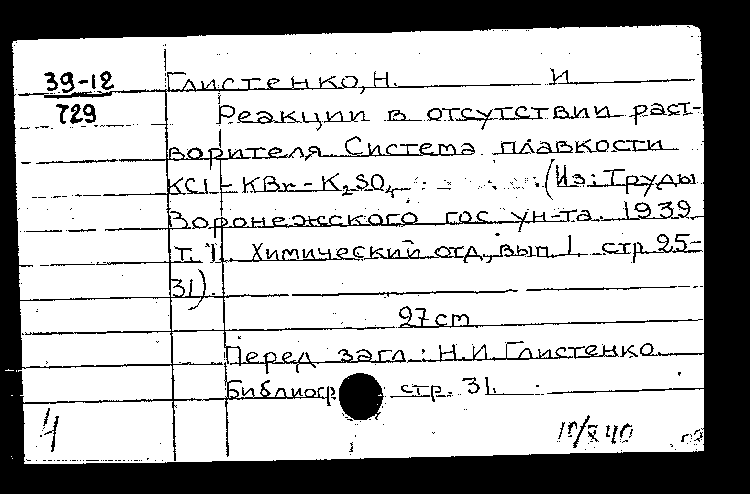 39-12
729
Глистенко, Н. И
Реакции в отсутствии раст-
ворителя Система плавкости
KCl - KBr - K₂SO₄ (Из: Труды
Воронежского гос ун-та. 1939
т. 11. Химический отд., вып 1. стр 25-
31).
27 cm
Перед загл.: Н. И. Глистенко.
Библиогр. стр. 31.
4
10/X 40